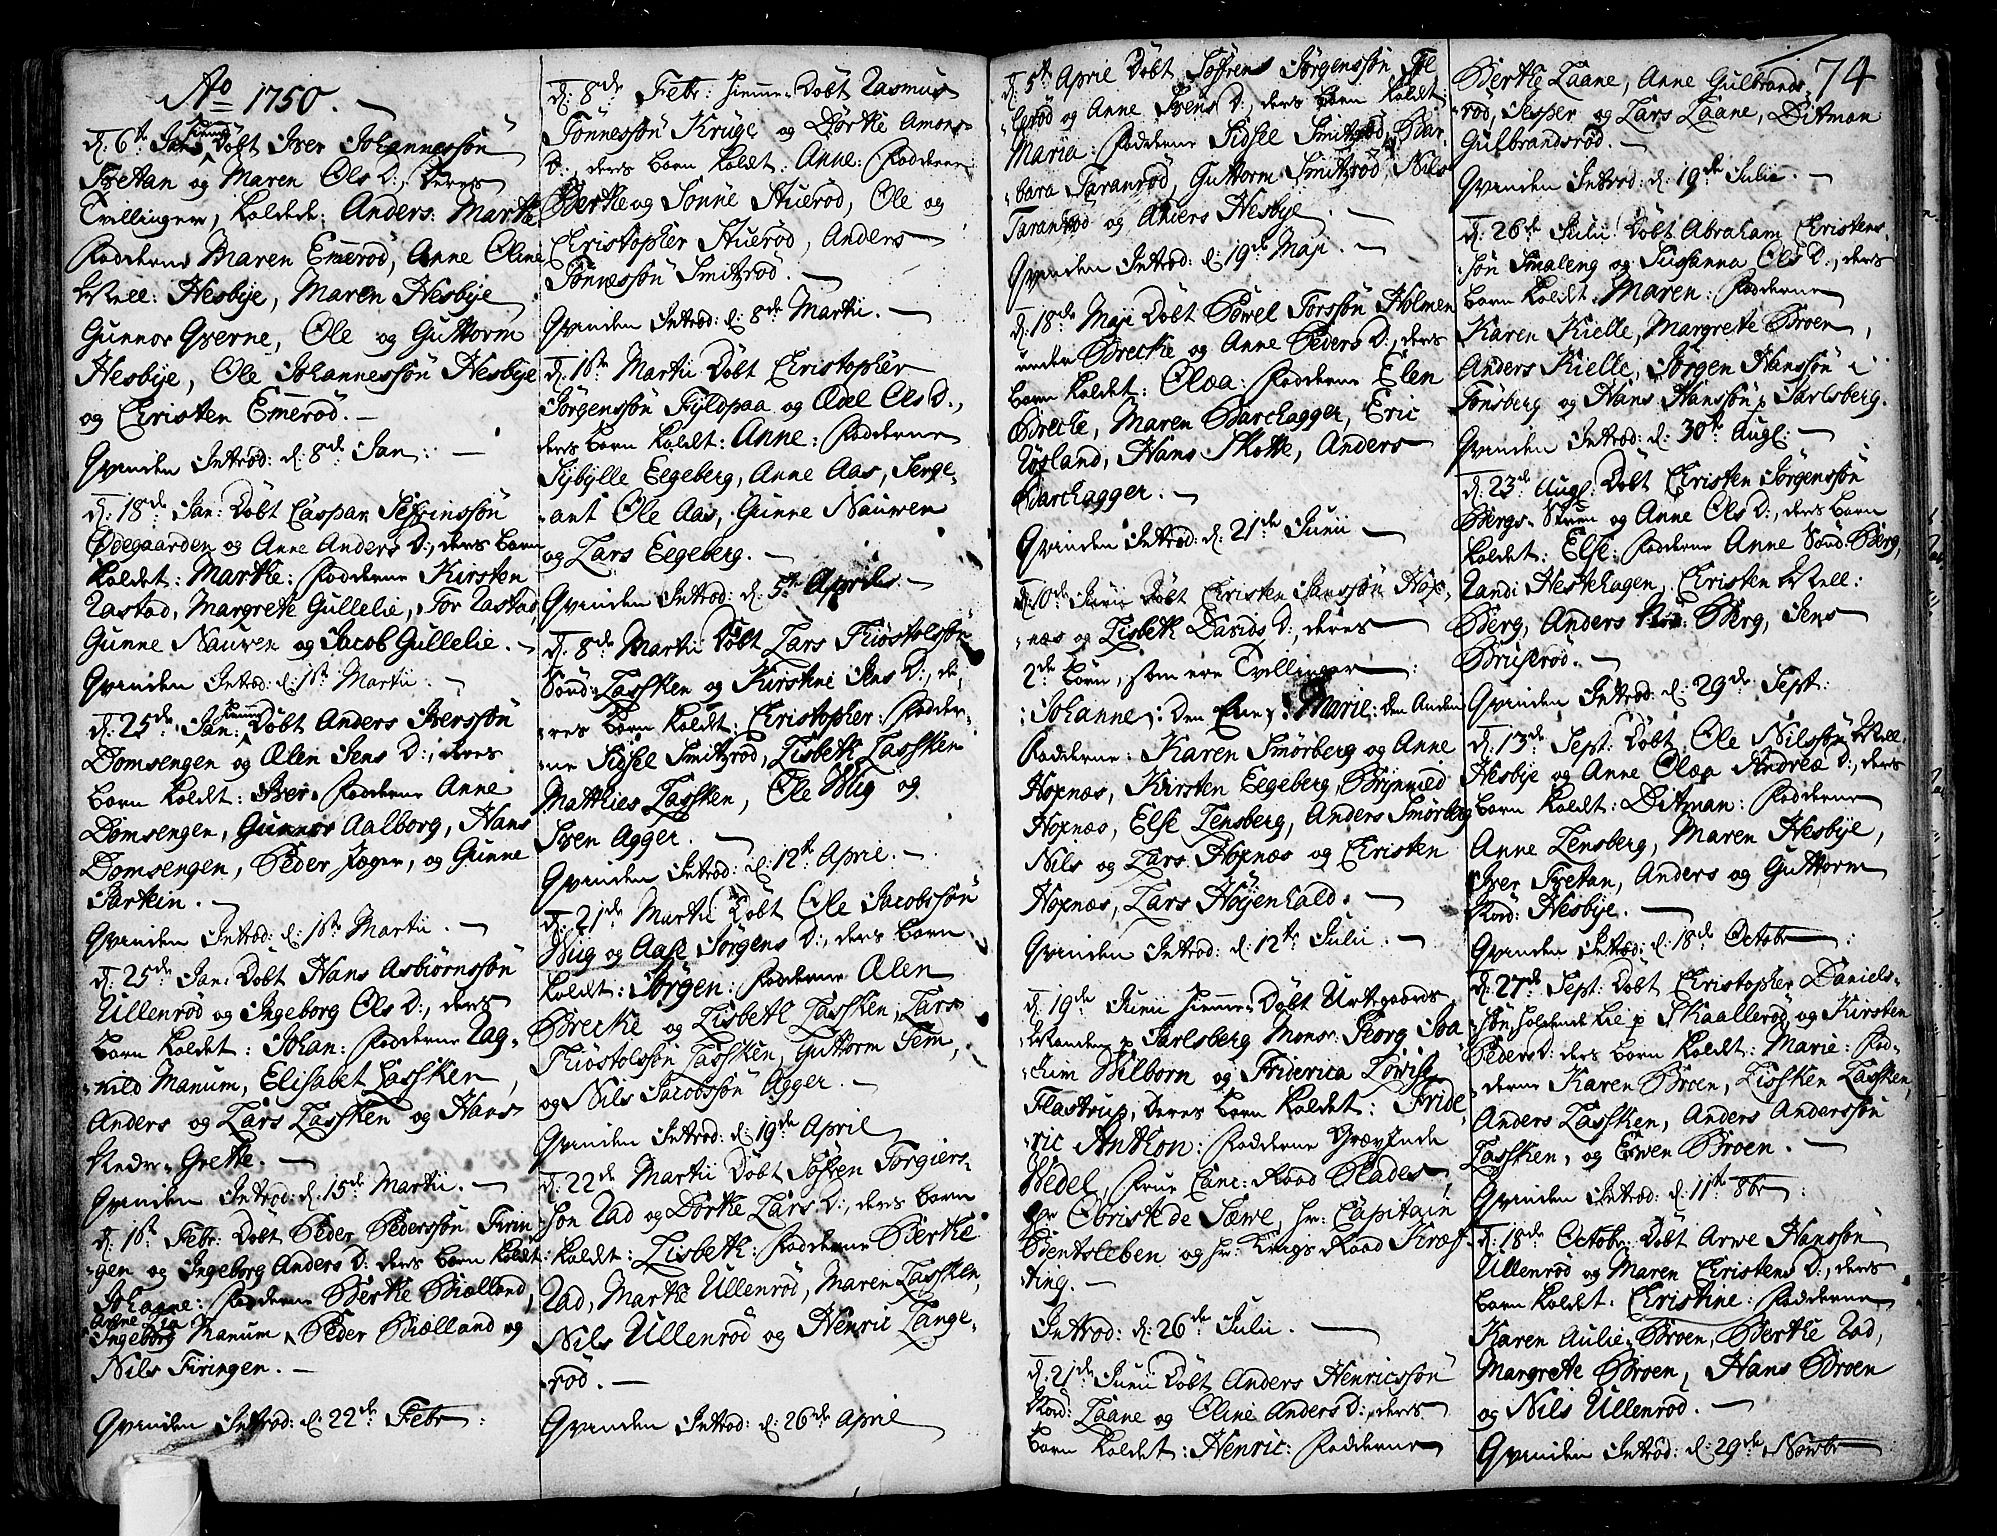 Ao 1750.
d: 6te Jan: hiemme Døbt Iver Johannessøn
Tvetan og Maren Ols D:, deres
Tvillinger, kaldede: Anders: Marthe
Fadderne Maren Emerød, Anne Oline
Well: Hesbye, Maren Hesbye
Gunnor Qverne, Ole og Guttorm
Hesbye, Ole Johannessøn Hesbye
og Christen Emerød.
Qvinden Introd: d: 8de Jan:
d: 18de Jan: Døbt Caspar Sefrinssøn
Ødegaarden og Anne Anders D:, deres barn
kaldet: Marthe: Fadderne Kirsten
Rastad, Margrete Gullelie, Tor Rastad,
Gunne Nauren og Jacob Gullelie.
Qvinden Introd: d: 1ste Martii.
d: 25de Jan: hiemme Døbt Anders Iverssøn
Domsengen og Ælen Jens D:, deres
barn kaldt: Iver: Fadderne Anne
Domsengen, Gunnor Aalborg, Hans
Domsengen, Peder Jæger, og Gunne
Sarthin.
Qvinden Introd: d: 1ste Martii.
d: 25de Jan: Døbt Hans Asbiørnssøn
Ullenrød og Ingeborg Ols D:, deres
barn kaldet: Johan: Fadderne Rag-
nild Manum, Elisabet Lassken,
Anders og Lars Lassken og Hans
Grethe.
Qvinden Introd: d: 15de Martii.
d: 1ste Febr: Døbt Peder Pederssøn Firin-
gen og Ingeborg Anders D: deres barn kaldt:
Johanne: Fadderne Berthe Biælland,
Anne Lia
Ingeborg Manum, Peder Biælland og
Nils Firingen.
Qvinden Introd: d: 22de Febr:
d: 8de Febr: hiemme-Døbt Rasmus
Tønnessøn Kruge og Dorthe Amons-
D:, deres barn kaldt: Anne: Fadderne
Berthe og Sonne Stuerød, Ole og
Christopher Stuerød, Anders
Tønnessøn Smitzrød.
Qvinden Introd: d: 8de Martii.
d: 1ste Martii Døbt Christopher
Jørgenssøn Fyldpaa og Ædel Ols D:,
deres barn kaldt: Anne: Fadderne
Sybylle Eegeberg, Anne Aas, Serge-
ant Ole Aas, Gunne Nauren
og Lars Eegeberg.
Qvinden Introd: d: 5te Aprilis.
d: 8de Martii Døbt Lars Tiøstolssøn
Sønd: Lassken og Kirstine Jens D:, de-
res barn kaldt: Christopher: Fadder-
ne Sidsel Smitzrød, Lisbeth Lassken
Matthies Lassken, Ole Wiig og
Iven Agger.
Qvinden Introd: d: 12te April.
d: 21de Martii Døbt Ole Jacobssøn
Wiig og Aase Jørgens D:, deres barn
kaldt: Jørgen: Fadderne Ælen
Brecke og Lisbeth Lassken, Lars
Tiøstolssøn Lassken, Guttorm Sem,
og Nils Jacobssøn Agger.
Qvinden Introd: d: 19de April
d: 22de Martii Døbt Søfren Torgiers-
søn Rad og Dorthe Lars D:, deres barn
kaldt: Lisbeth: Fadderne Berthe
Rad, Marthe Ullenrød, Maren Lassken,
Nils Ullenrød og Henric Lange-
rød.
Qvinden Introd: d: 26de April
d: 5te April Døbt Søfrens Jørgenssøn
og Anne Ivens D:, deres barn kaldt:
Maria: Fadderne Sidsel Smitzrød, Bar-
bara Taranrød, Guttorm Smitzrød, Nils
Taranrød og Anders Hesbye.
Qvinden Introd: d: 19de Maji.
d: 18de Maji Døbt Powel Torssøn Holmen
under Brecke og Anne Peders D:, deres
barn kaldet: Olæa: Fadderne Elen
Brecke, Maren Barchagger, Eric
Røsland, Hans Skotte, Anders
Barchagger.
Qvinden Introd: d: 21de Junii
d: 10de Junii Døbt Christen Janssøn Hox-
næs og Lisbeth Davids D:, deres
2de børn, som ere Tvillinger:
Johanne: den Ene: Marie: den Anden
Fadderne: Karen Smørberg og Anne
Hoxnæs, Kirsten Eegeberg, Brynnild
Hoxnæs, Else Lensberg, Anders Smørberg
Nils og Lars Hoxnæs og Christen
Hoxnæs, Lars Høyenhald.
Qvinden Introd: d: 12te Julii.
d: 19de Junii hiemme-Døbt Urtegaards
Manden p Jarlsberg Monsr Georg Joa-
chim Wilborn og Friderica Lowisa
Flastrup, deres barn kaldet: Fride-
ric Anthon: Fadderne Grævinde
Wedel, Frue Canc: Raad Blades,
Hr Obriste de Sæwe, Hr: Capitain
Bentsleben og Hr: Krigs Raad Kræf-
ting.
Introd: d: 26de Julii.
d: 21de Junii Døbt Anders Henricssøn
Nord: Laane og Oline Anders D:, deres
barn kaldet: Henric: Fadderne
74
Berthe Laane, Anne Gulbrands-
rød, Jesper og Lars Laane, Ditman
Gulbrandsrød.
Qvinden Introd: d: 19de Julii.
d: 26de Julii Døbt Abraham Christens-
søn Smaleng og Susanna Ols D:, deres
barn kaldt: Maren: Fadderne
Karen Kielle, Margrete Broen,
Anders Kielle, Jørgen Hanssøn i
Tønsberg og Hans Hanssøn p Jarlsberg.
Qvinden Introd: d: 30te Aug:
d: 23de Aug: Døbt Christen Jørgenssøn
Bergs-Strøm og Anne Ols D:, deres barn
kaldet: Else: Fadderne Anne Sønd: Berg,
Randi Hestehagen, Christen Well:
Berg, Anders Nor: Berg, Jens
Bruserød.
Qvinden Introd: d: 29de Sept:
d: 13de Sept: Døbt Ole Nilssøn Well:
Hesbye og Anne Olæa Andreæ D:, deres
barn kaldt: Ditman: Fadderne
Anne Lensberg, Maren Hesbye,
Iver Tvetan, Anders og Guttorm
Nord: Hesbye.
Qvinden Introd: d: 18de Octobr:
d: 27de Sept: Døbt Christopher Daniels-
søn, holdende til p Skaallerød, og Kirsten
Peders D: deres barn kaldt: Marie: Fad-
derne Karen Broen, Lissken Lassken,
Anders Lassken, Anders Anderssøn
Lassken, og Erwen Broen.
Qvinden Introd: d: 11te 8br:
d: 18de Octobr: Døbt Arwe Hanssøn
Ullenrød og Maren Christens D:, deres
barn kaldt: Christine: Fadderne
Karen Aulie-Broen, Berthe Rad,
Margrete Broen, Hans Broen
og Nils Ullenrød.
Qvinden Introd: d: 29de Novbr